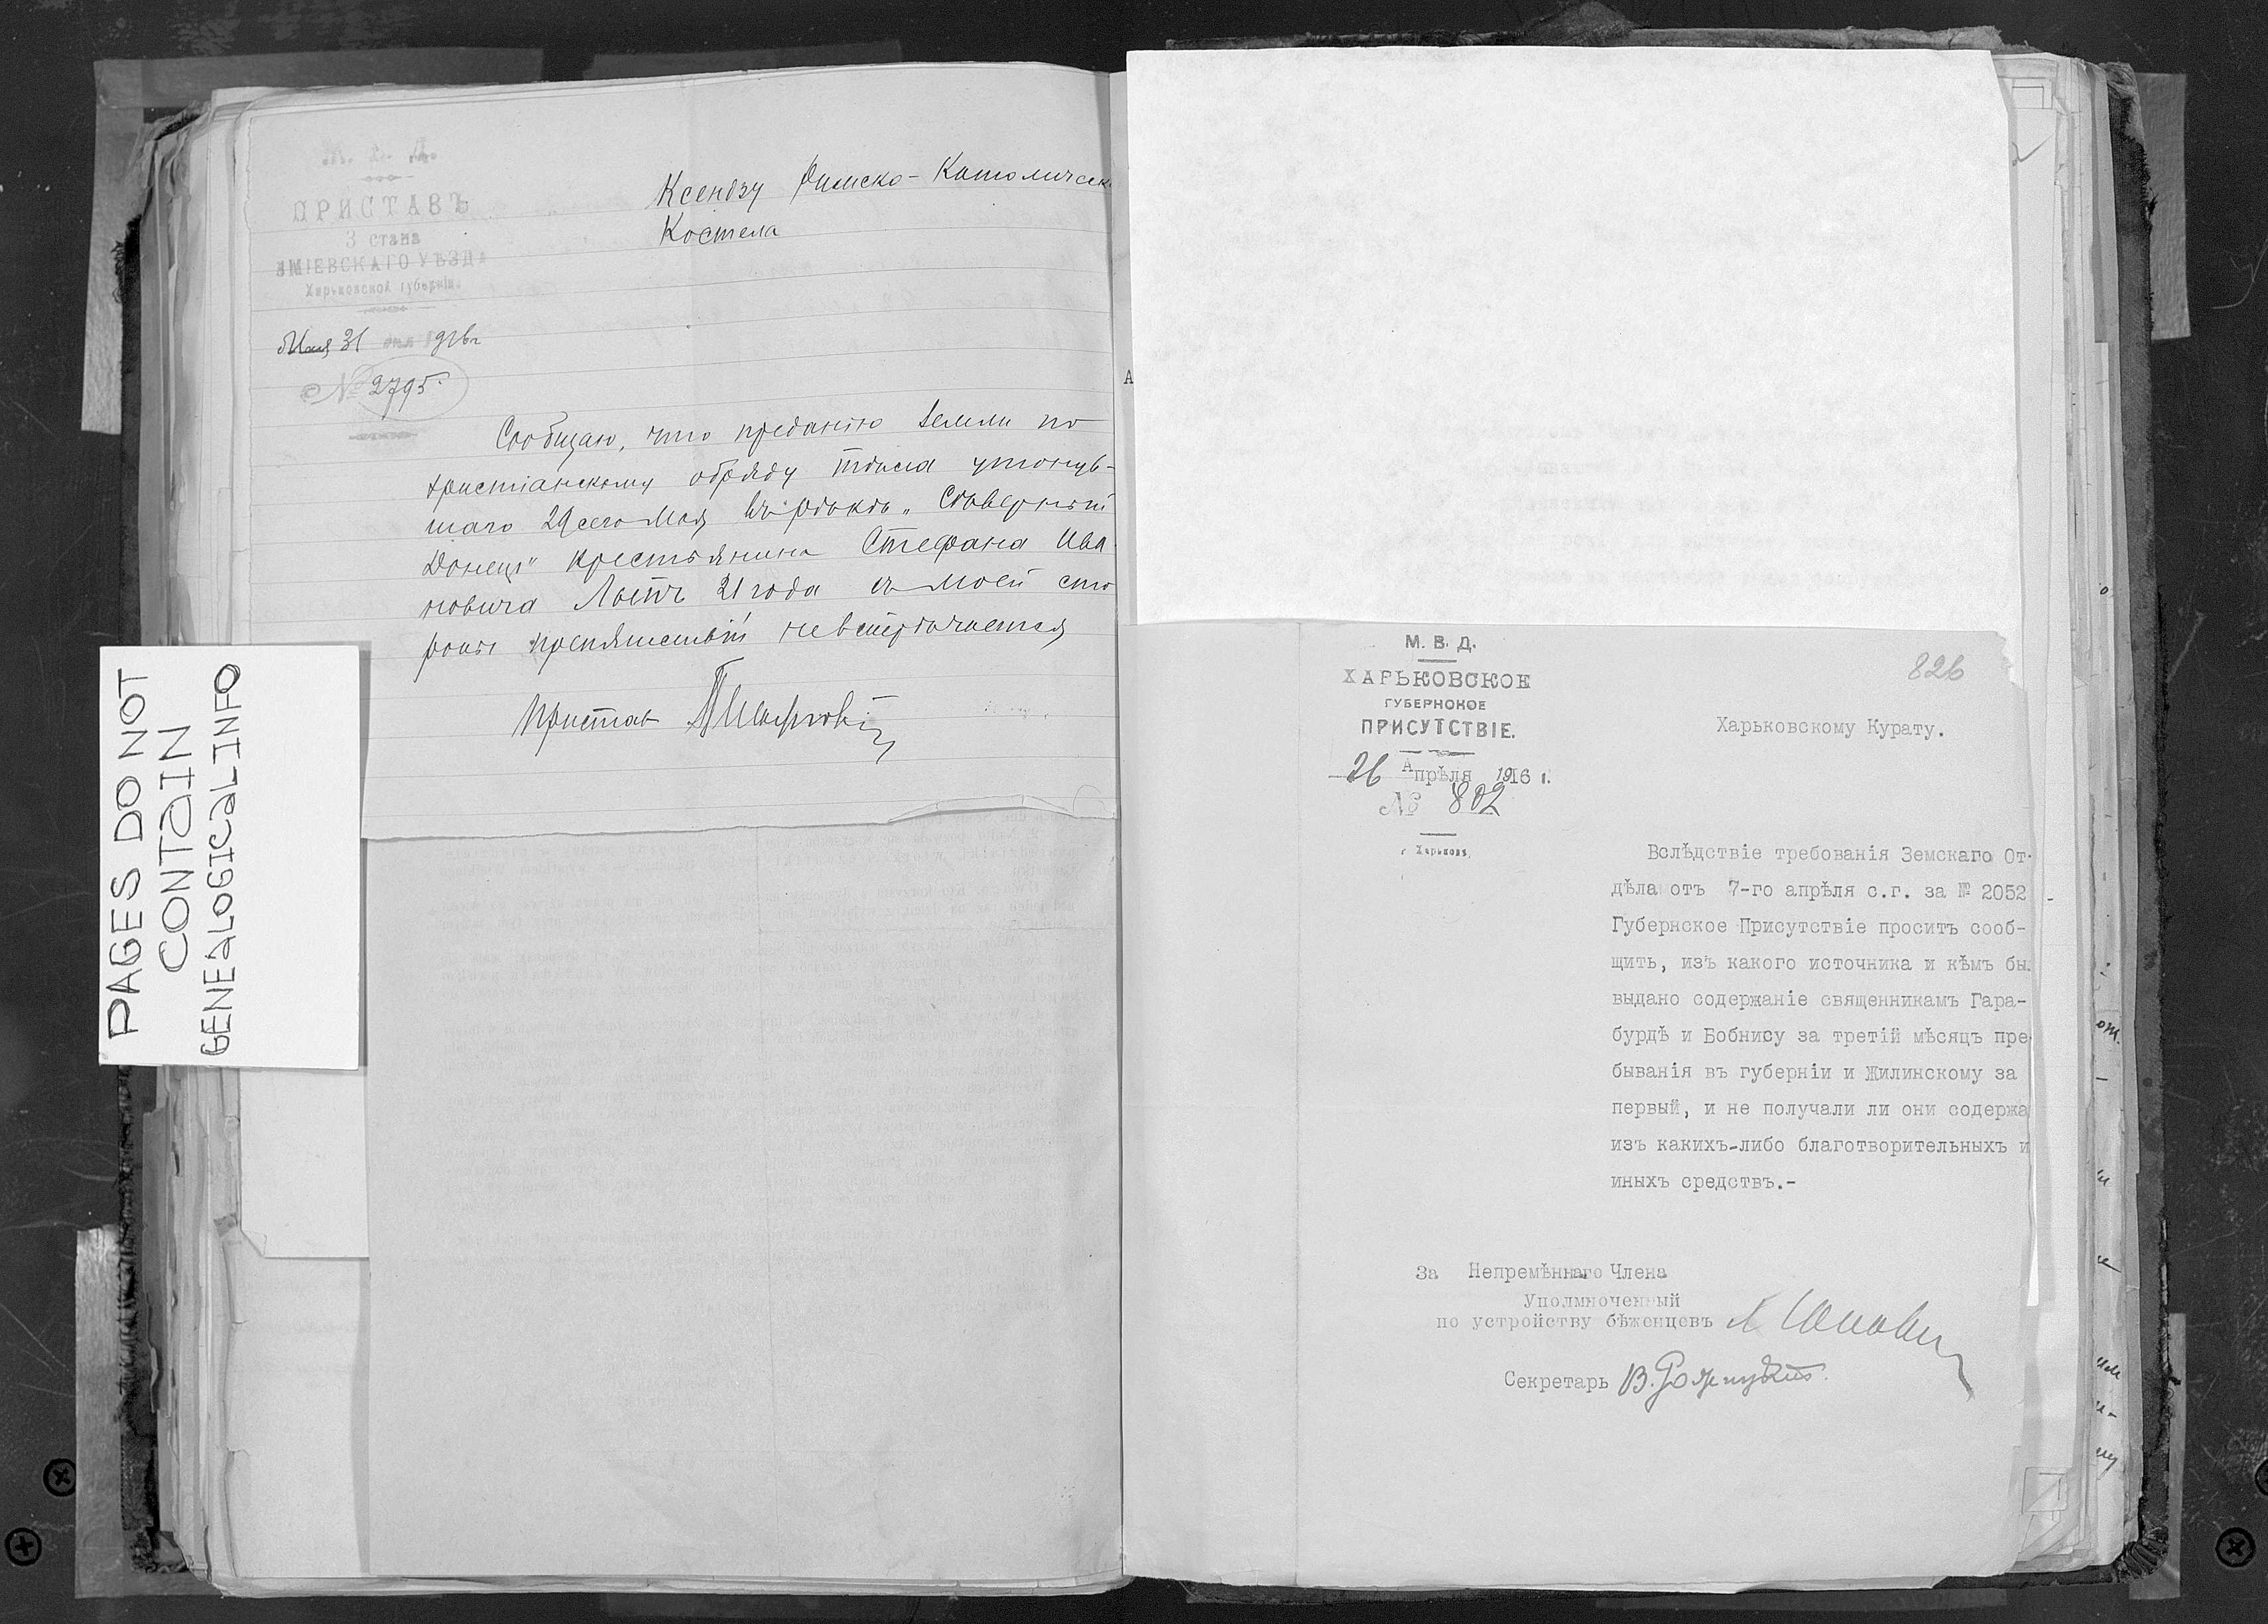 М. В. Д.
ПРИСТАВЪ
3 стана
ЗМІЕВСКАГО УѢЗДА
Харьковской губерніи.
Мая 31 дня 1916 г
№ 2795.
Ксендзу Римско-Католическ
Костела
Сообщаю, что преданію земли по
христіанскому обряду тѣла утонув-
шаго 29 сего Мая въ рѣкѣ „Сѣверный
Донецъ" крестьянина Стефана Ива
новича 21 года съ моей сто
роны препятствій не встрѣчается
Приставъ
PAGES DO NOT
CONTAIN
GENEALOGICAL INFO
М. В. Д.
ХАРЬКОВСКОЕ
ГУБЕРНСКОЕ
ПРИСУТСТВІЕ.
26 Апрѣля 1916 г.
№ 802
г. Харьковъ.
826
Харьковскому Курату.
Вслѣдствіе требованія Земскаго От-
дѣла отъ 7-го апрѣля с.г. за № 2052
Губернское Присутствіе проситъ сооб-
щить, изъ какого источника и кѣмъ бы
выдано содержаніе священникамъ Гара-
бурдѣ и Бобнису за третій мѣсяцъ пре
быванія въ губерніи и Жилинскому за
первый, и не получали ли они содержа
изъ какихъ-либо благотворительныхъ и
иныхъ средствъ.-
За Непремѣннаго Члена
Уполмноченный
по устройству бѣженцевъ
Секретарь В.